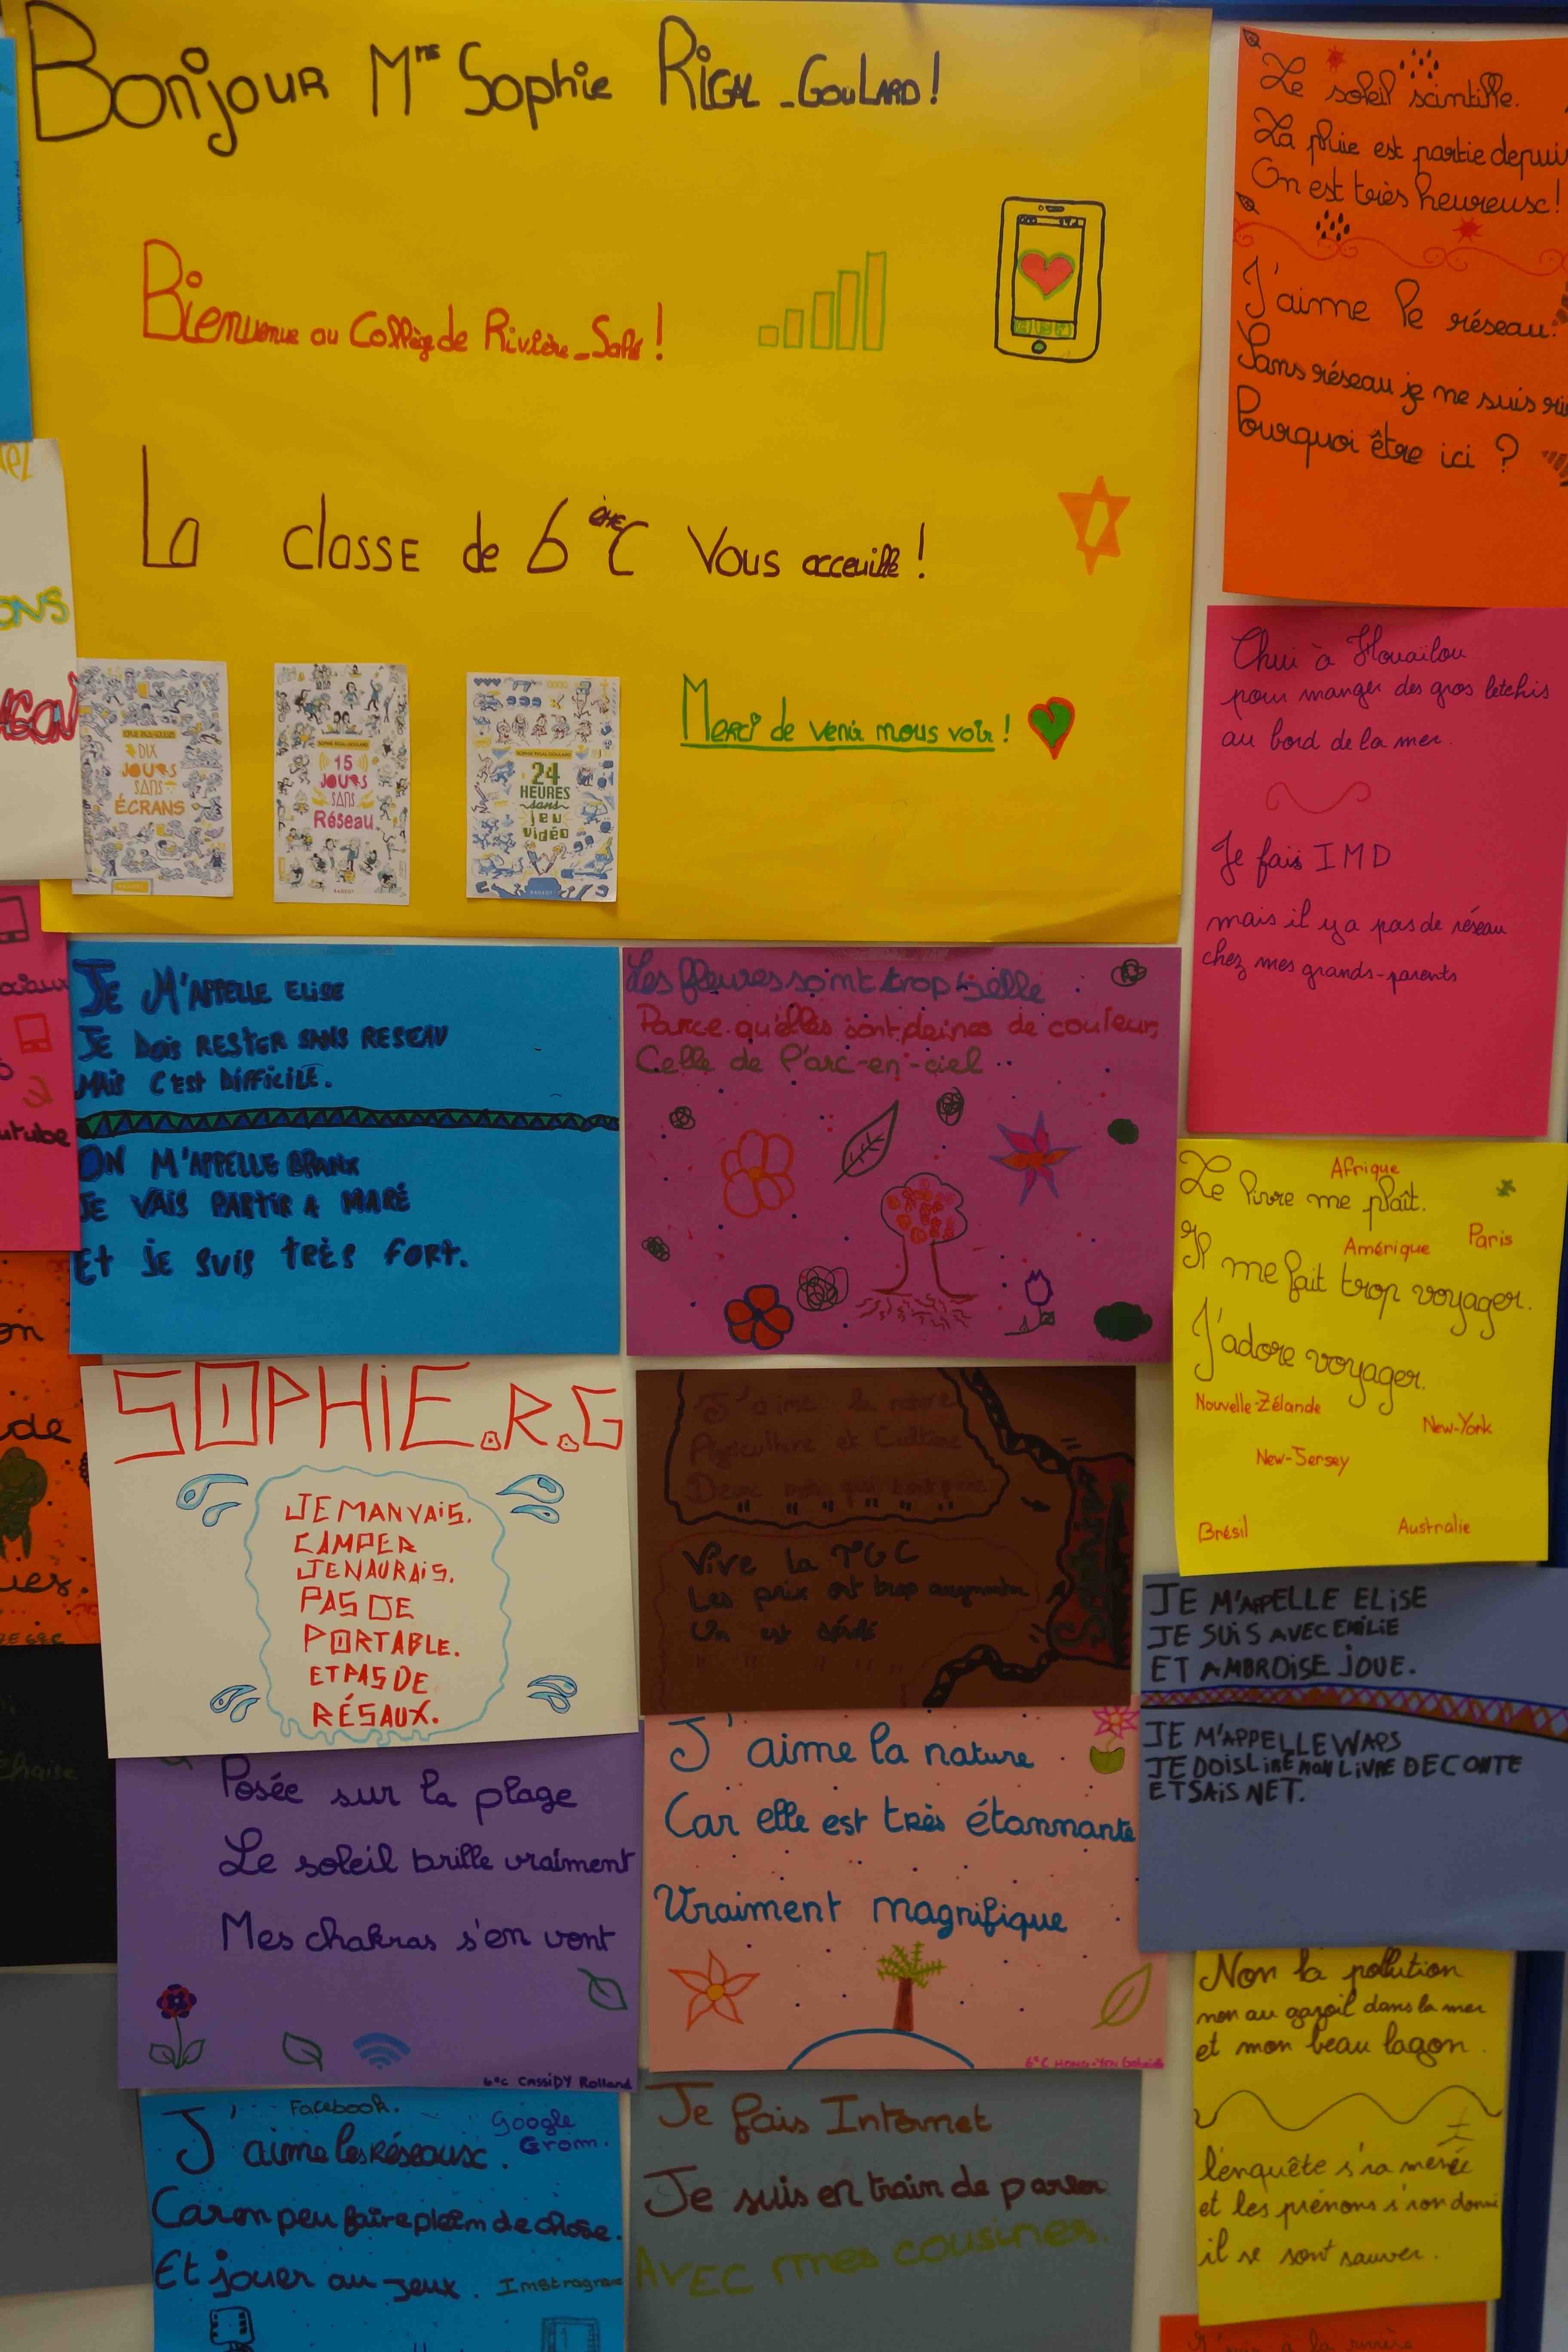 Bonjour Mme Sophie Rigal-Goulard!
Bienvenue au Collège de Rivière-Salé!
La classe de 6ème C Vous acceuille!
Merci de venir nous voir!
SOPHIE RIGAL-GOULARD
DIX
JOURS
SANS
ÉCRANS
RAGEOT
SOPHIE RIGAL-GOULARD
15
JOURS
SANS
Réseau
RAGEOT
SOPHIE RIGAL-GOULARD
24
HEURES
sans
jeu
vidéo
RAGEOT
Le soleil scintille.
La pluie est partie depui
On est très heureux!
J'aime le réseau.
Sans réseau je ne suis ri
Pourquoi être ici ?
Chui à Houaïlou
pour manger des gros letchis
au bord de la mer.
Je fais IMD
mais il y a pas de réseau
chez mes grands-parents
JE M'APPELLE ELISE
JE DOIS RESTER SANS RESEAU
MAIS C'EST DIFFICILE.
ON M'APPELLE
JE VAIS PARTIR A MARÉ
Et JE SUIS TRÈS FORT.
Les fleures sont trop belle
Parce qu'elles sont pleines de couleur
Celle de l'arc-en-ciel
Afrique
Le livre me plaît.
Paris
Amérique
Il me fait trop voyager.
J'adore voyager.
Nouvelle-Zélande
New-York
New-Jersey
Brésil
Australie
SOPHIE.R.G
JE MANVAIS.
CAMPER
JENAURAIS.
PAS DE
PORTABLE.
ET PAS DE
RÉSAUX.
J'aime la nature
Agriculture et Culture
Vive la TGC
Les prix ont trop augmenter
On est
JE M'APPELLE ELISE
JE SUIS AVEC EMILIE
ET AMBROISE JOUE.
JE M'APPELLE WAPS
JE DOIS LIRE MON LIVRE DE CONTE
ETSAIS NET.
Posée sur la plage
Le soleil brille vraiment
Mes chakras s'en vont
6°C CASSIDY Rolland
J'aime la nature
Car elle est très étonnante
Vraiment magnifique
6°C
Non la pollution
non au gazoil dans la mer
et mon beau lagon.
l'enquête s'ra menée
et les prénoms s'ron donné
il se sont sauver.
Facebook.
Google
Grom.
J'aime les Réseaux.
Car on peu faire pleim de chose.
Et jouer au jeux.
Imstragrame
Je fais Internet
Je suis en train de parler
AVEC mes cousines.
ONS
utube
on
de
ues.
chaise
à la rivière